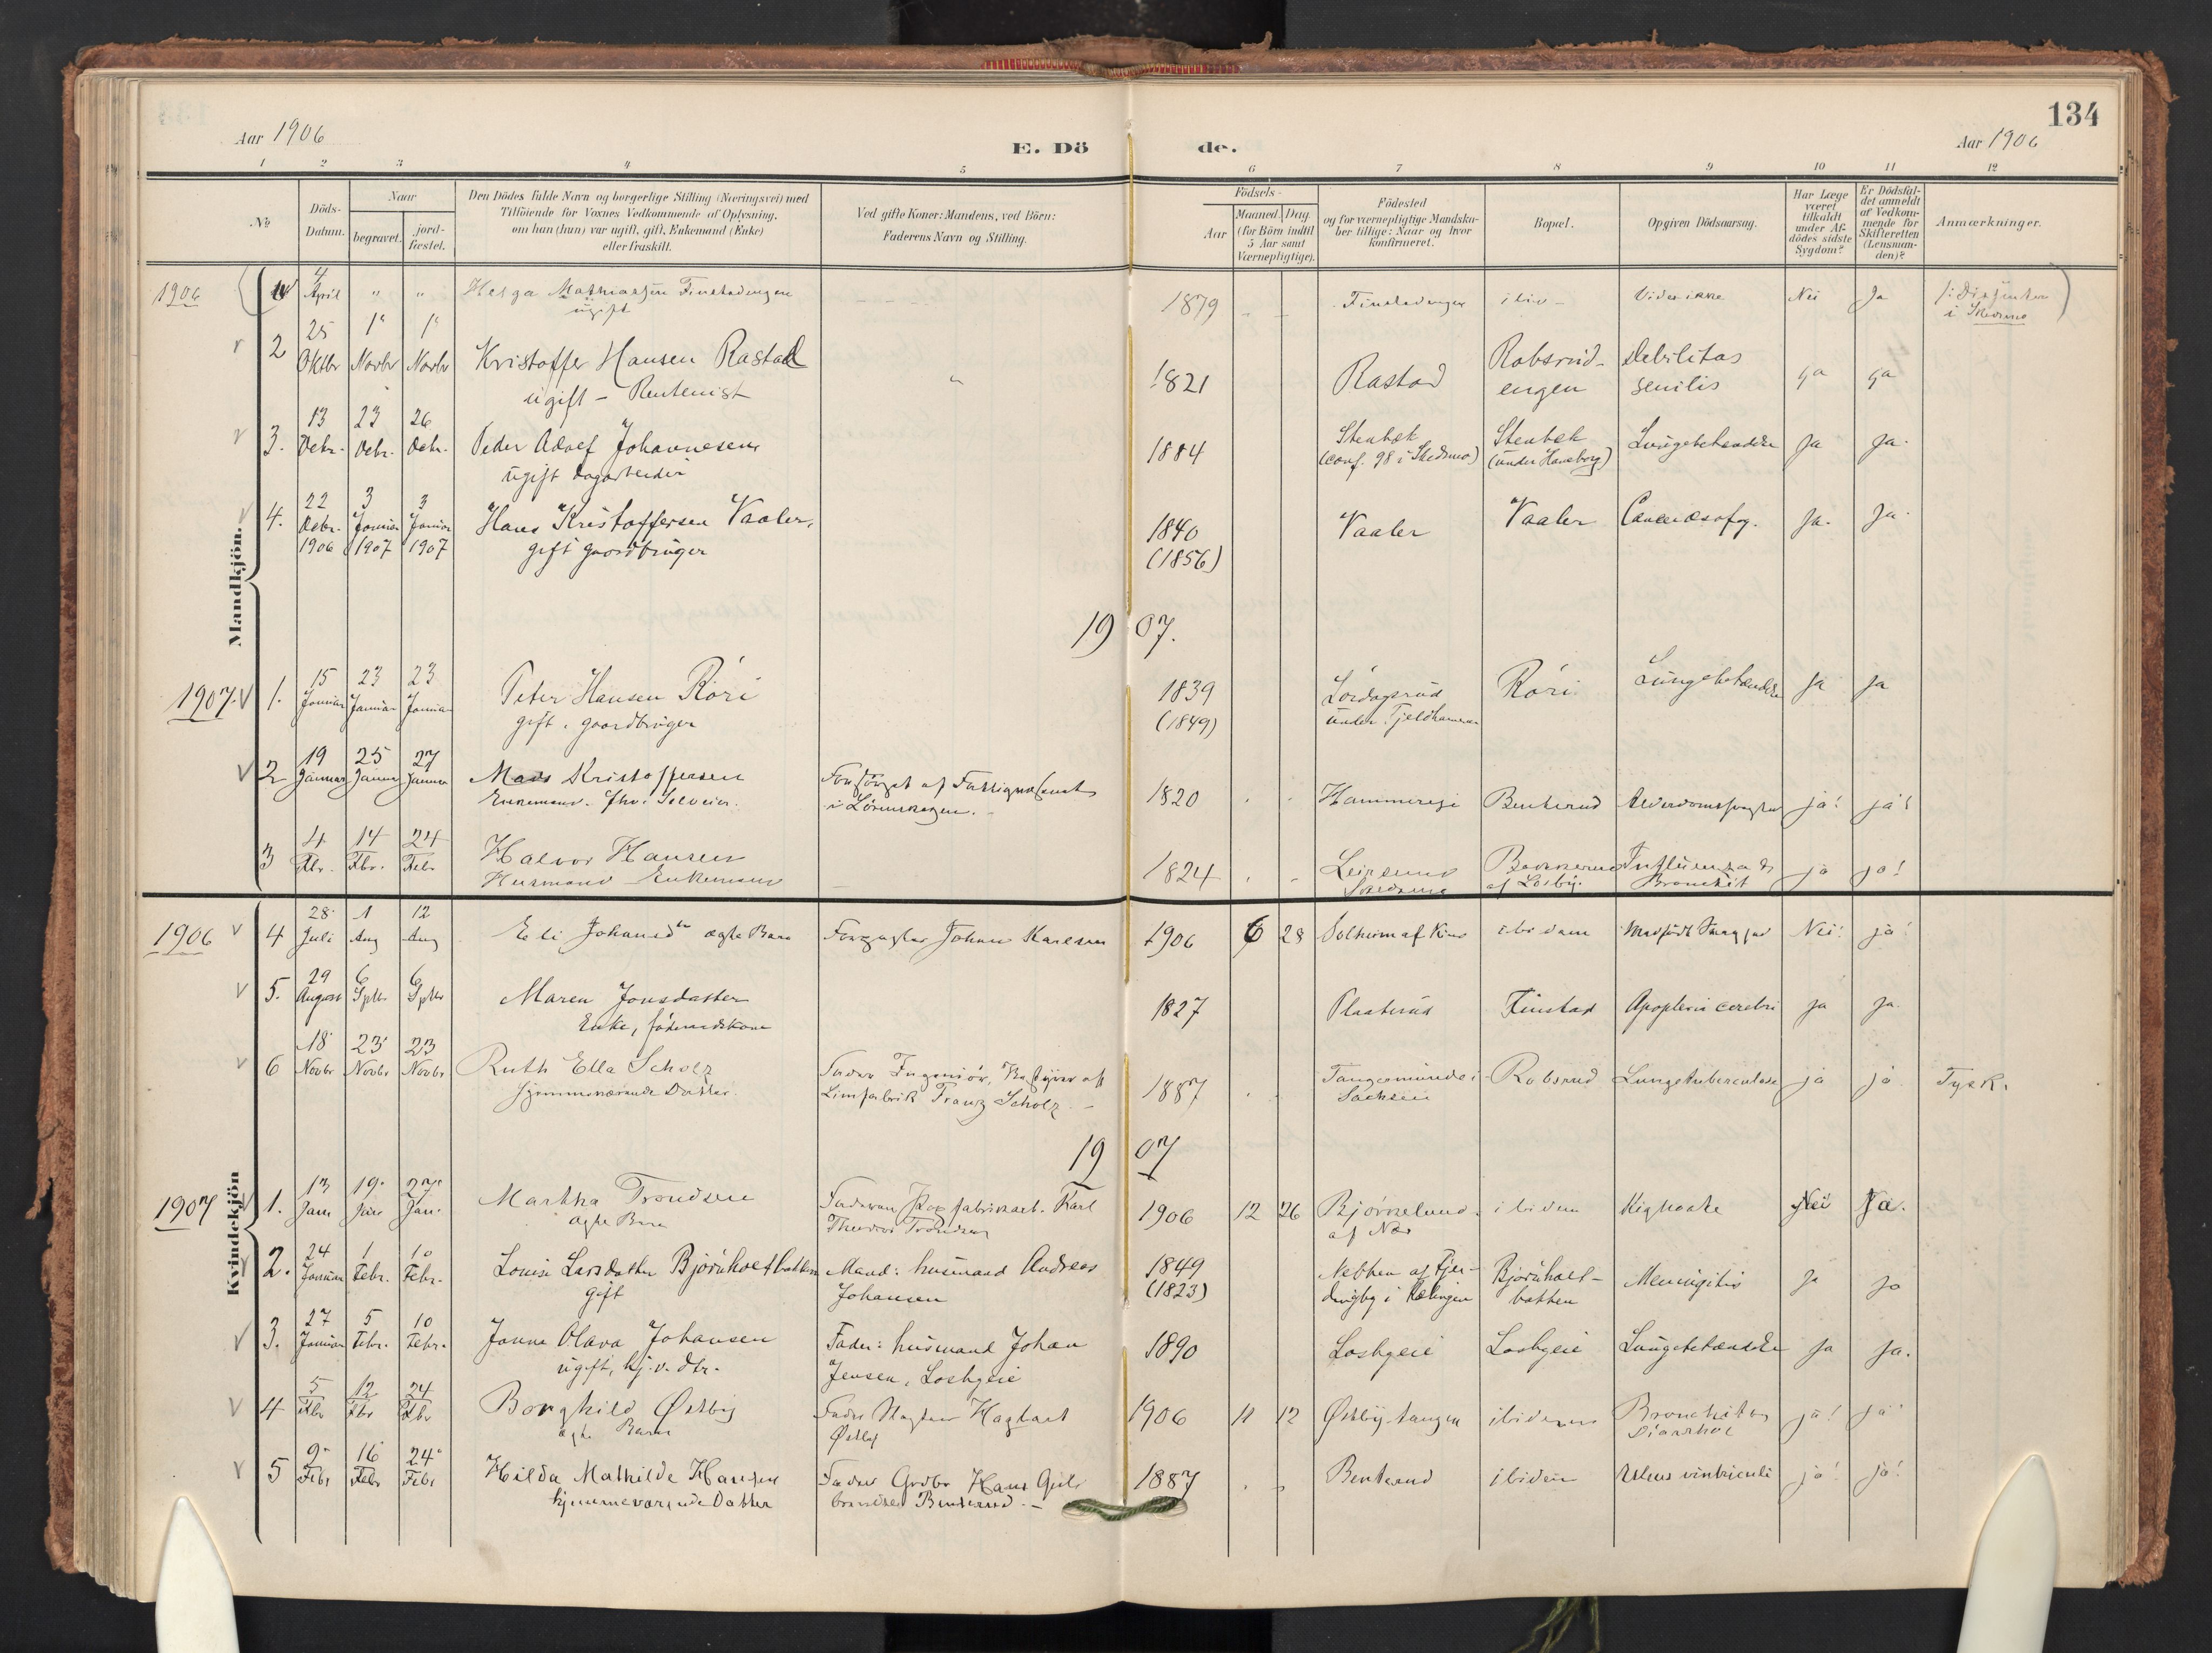 134
Aar 1906
E. Döde.
Aar 1906
1 2 3 4 5 6 7 8 9 10 11 12
№
Döds-Datum.
Naar
begravet.
jord-fæstet.
Den Dödes fulde Navn og borgerlige Stilling (Næringsvei) med
Tilföiende for Voxnes Vedkommende af Oplysning,
om han (hun) var ugift, gift, Enkemand (Enke)
eller fraskilt.
Ved gifte Koner: Mandens, ved Börn:
Faderens Navn og Stilling.
Födsels-
Aar
Maaned. Dag.
(for Börn indtil
5 Aar samt
Værnepligtige).
Födested
og for værnepligtige Mandska-
ber tillige: Naar og hvor
konfirmeret.
Bopæl.
Opgiven Dödsaarsag.
Har Læge
været
tilkaldt
under Af-
dödes sidste
Sygdom?
Er Dödsfal-
det anmeldt
af Vedkom-
mende for
Skifteretten
(Lensman-
den)?
Anmærkninger.
Mandkjön.
1906 4 April " " Helga Mathiassen Finstadengen 1879 Finstadengen Vides ikke Nei Ja
ugift
i Skedsmo
2 25 Oktbr 1 Novbr 1 Novbr Kristoffer Hansen Rastad 1821 Rastad Robsrud- Debilitas ja ja
ugift - Rentenist engen senilis
3. 13 Debr. 23 Debr. 26 Debr. Peder Adolf Johannesen 1884 Stenbæk Stenbæk Lungebetændelse Ja Ja.
ugift dagarbeider (conf. 98 i Skedsmo) (under Haneborg)
4. 22 Debr. 1906 3 Januar 1907 3 Januar 1907 Hans Kristoffersen Vaaler, 1840 Vaaler Vaaler Ja. Ja.
gift gaardbruger (1856)
1907.
1907. 1. 15 Januar 23 Januar 23 Januar Peter Hansen Röri 1839 Lørdagsrud Röri Lungebetændelse Ja Ja
gift. gaardbruger (1849) under Fjeldhammer
2 19 Januar 25 Januar 27 Januar Mads Kristoffersen Forsörget af Fattigvæsenet 1820 Bentsrud ja! ja!
Enkemand. i Lörenskogen.
3 4 Fbr. 14 Fbr. 24 Febr Halvor Hansen 1824 Leirsund Influenza & ja ja!
Husmand Enkemand Skedsmo af Losby. Bronchit
Kvindekjön
1906 4 28 Juli 1 Aug 12 Aug Eli Johansdtr ægte Barn Johan Karlsen 1906 6 28 Solheim af ibidem Nei! ja!
5. 29 August 6 Sptbr 6 Sptbr Maren Jonsdatter 1827 Finstad Apoplexia cerebri ja ja.
Enke, födraadskone
6 18 Novbr 23 Novbr 23 Novbr Ruth Ella Scholz Fader Ingeniör, Bestyrer af 1887 Tangermünde i Robsrud Lungetuberculose ja ja Tysk.
hjemmeværende Datter. Limfabrik Franz Scholz. Sachsen
1907
1907 1. 13 Janr 19 Jan 27 Jan. Martha Trondsen Karl 1906 12 26 Björnelund ibidem Kighoste Nei Ja.
ægte Barn Theodor Trondsen
2. 24 Januar 1 Febr. 10 Febr. Louise Larsdatter Björnholtbakken Mand: husmand Andreas 1849 Nebben af Fjer- Björnholt- Meningitis Ja Ja
gift Johansen (1823) dingby i Rælingen bakken
3. 27 Januar 5 Febr. 10 Febr. Olava Johansen Fader: husmand Johan 1890 Losbyeie Losbyeie Lungebetændelse Ja Ja.
ugift, hj. v. dtr. Jensen, Losbyeie
4 5 Fbr 12 Fbr 24 Fbr Borghild Østby Fader Slagter 1906 11 12 Østbytangen ibidem ja! ja!
ægte Barn Østby Diarrhoe
5 9 Febr 16 Febr 24 Febr Hilda Mathilde Hansen Fader Grdbr Hans Gul- 1887 Bentsrud ibidem Ulcus ventriculi ja! ja!
hjemmeværende Datter brandsen Bentsrud.